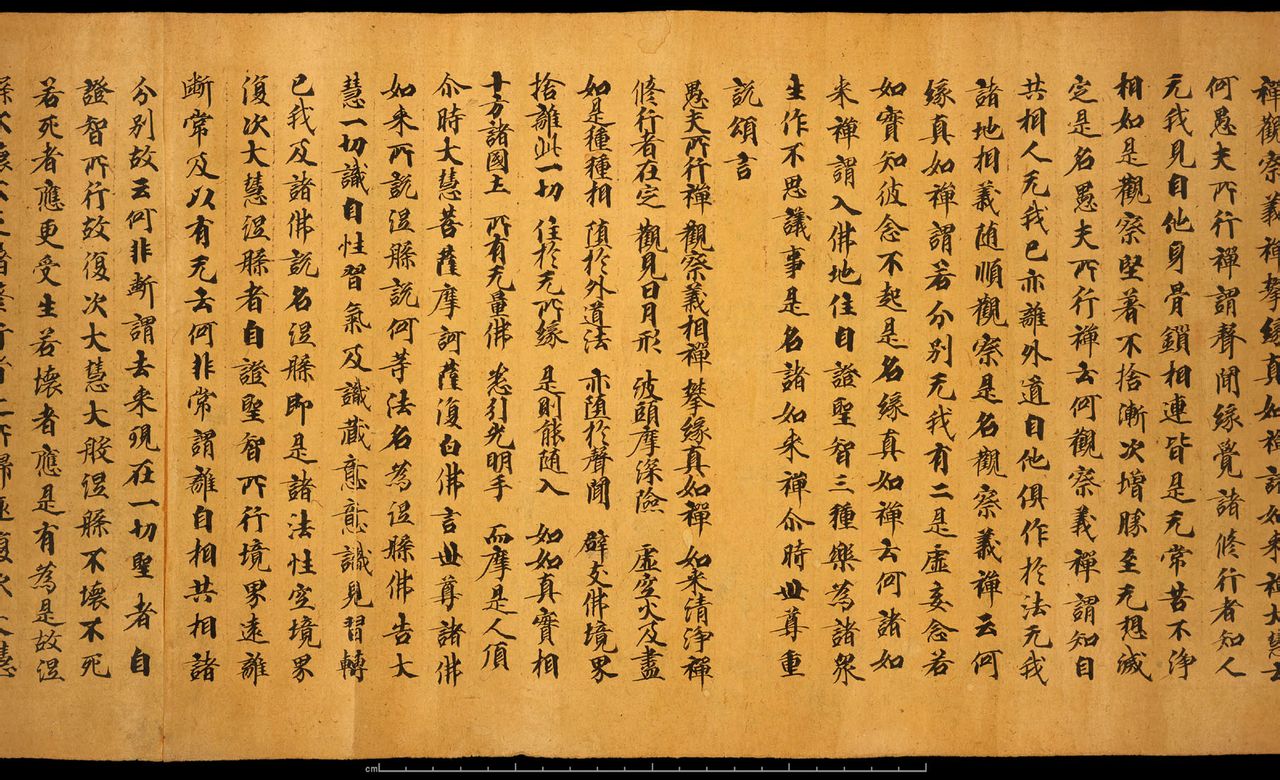 禪觀察義禪攀緣真如禪諸如來禪大慧云
何愚夫所行禪謂聲聞緣覺諸修行者知人
无我見自他身骨鎖相連皆是无常苦不淨
相如是觀察堅著不捨漸次增勝至无想滅
定是名愚夫所行禪云何觀察義禪謂知自
共相人无我已亦離外道自他俱作於法无我
諸地相義随順觀察是名觀察義禪云何
緣真如禪謂若分別无我有二是虛妄念若
如實知彼念不起是名緣真如禪云何諸如
来禪謂入佛地住自證聖智三種樂為諸衆
生作不思議事是名諸如来禪尒時世尊重
説頌言
愚夫所行禪 觀察義相禪 攀緣真如禪 如来清淨禪
修行者在定 觀見日月形 波頭摩深險 虛空火及盡
如是種種相 墮於外道法 亦墮於聲聞 辟支佛境界
捨離此一切 住於无所緣 是則能随入 如如真實相
十方諸國土 所有无量佛 悉引光明手 而摩是人頂
尒時大慧菩薩摩訶薩復白佛言世尊諸佛
如来所説涅槃説何等法名為涅槃佛告大
慧一切識自性習氣及識藏意意識見習轉
已我及諸佛説名涅槃即是諸法性空境界
復次大慧涅槃者自證聖智所行境界遠離
斷常及以有无云何非常謂離自相共相諸
分別故云何非斷謂去来現在一切聖者自
證智所行故復次大慧大般涅槃不壞不死
若死者應更受生若壞者應是有為是故涅
槃不壞不死諸修行者之所歸趣復次大慧